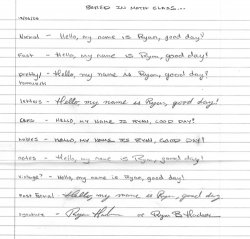 BORED IN MATH CLASS...
Normal - Hello, my name is Ryan, good day!
Fast - Hello, my name is Ryan, good day!
pretty/ - Hello, my name is Ryan, good day!
letters - Hello, my name is Ryan, good day!
- HELLO, MY NAME IS RYAN, GOOD DAY!
- HELLO, MY NAME IS RYAN, GOOD DAY!
notes - Hello, my name is Ryan, good day!
vintage? - Hello, my name is Ryan, good day!
Post Formal - Hello, my name is Ryan, good day
signature - Ryan or Ryan B.